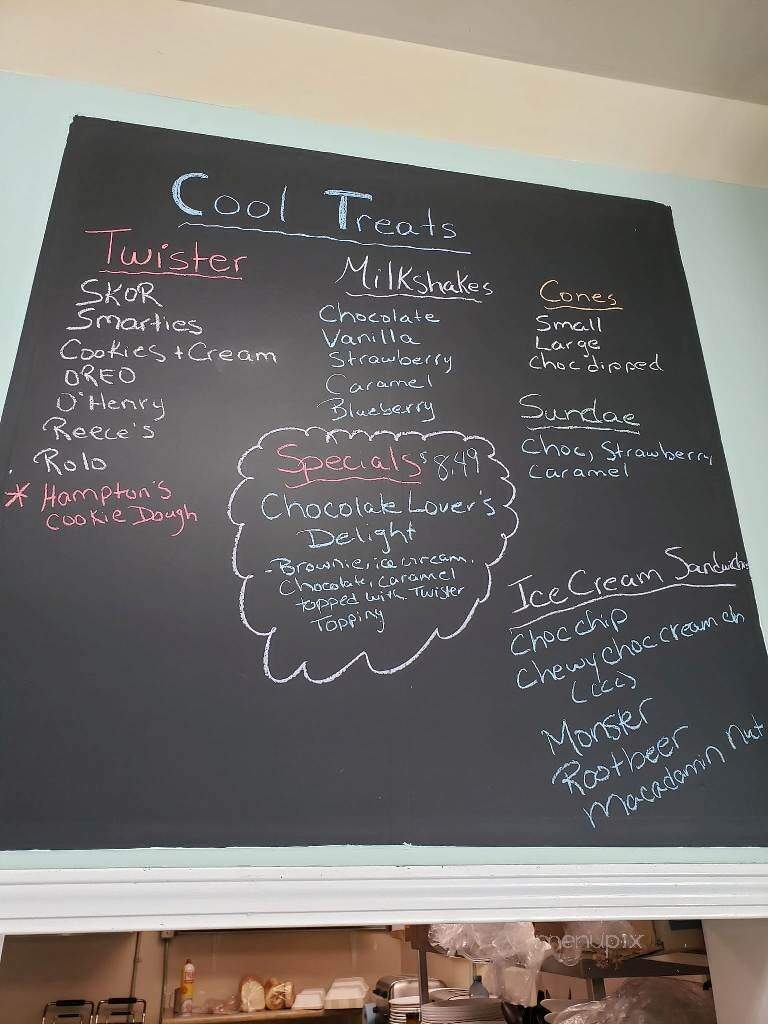 Cool Treats
Twister
SKOR
Smarties
Cookies + Cream
OREO
O'Henry
Reece's
Rolo
* Hampton's
Cookie Dough
Milkshakes
Chocolate
Vanilla
Strawberry
Caramel
Blueberry
Cones
Small
Large
Choc dipped
Sundae
Choc, Strawberry
Caramel
Specials $8.49
Chocolate Lover's
Delight
- Brownie, ice cream,
Chocolate, caramel
topped with Twister
Topping
Ice Cream Sandwiches
Choc chip
Chewy choc cream ch
(ccc)
Monster
Rootbeer
Macadamin nut
menupix